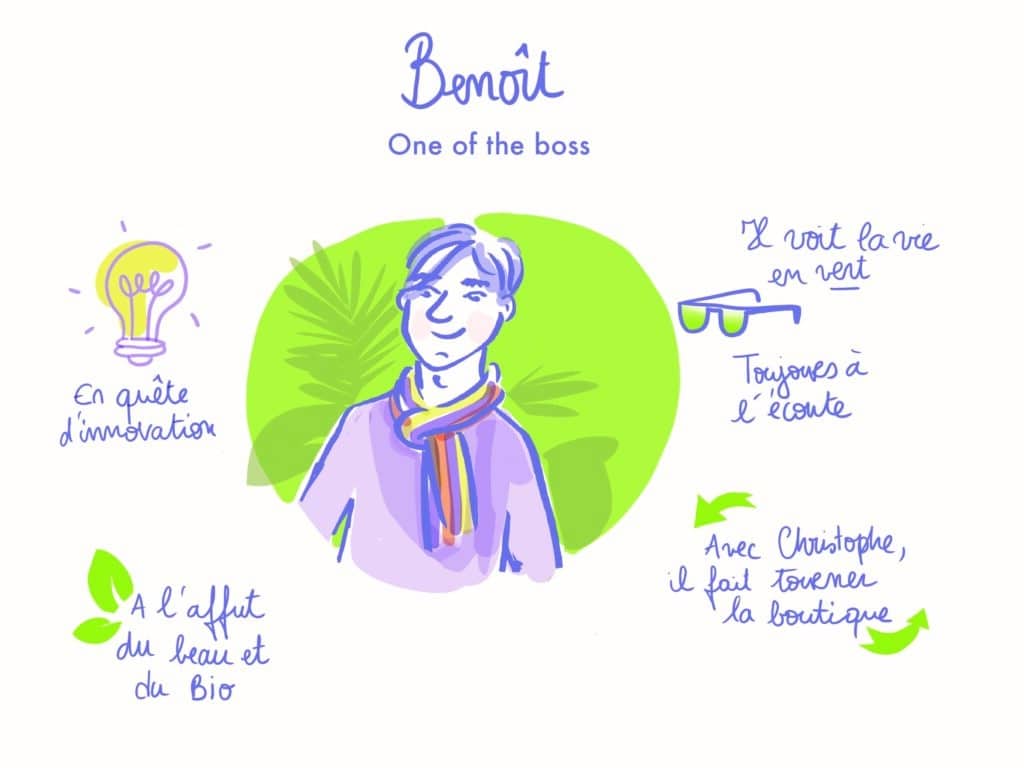 Benoît
One of the boss
En quête
d'innovation
Il voit la vie
en vert
Toujours à
l'écoute
A l'affut
du beau et
du Bio
Avec Christophe,
il fait tourner
la boutique